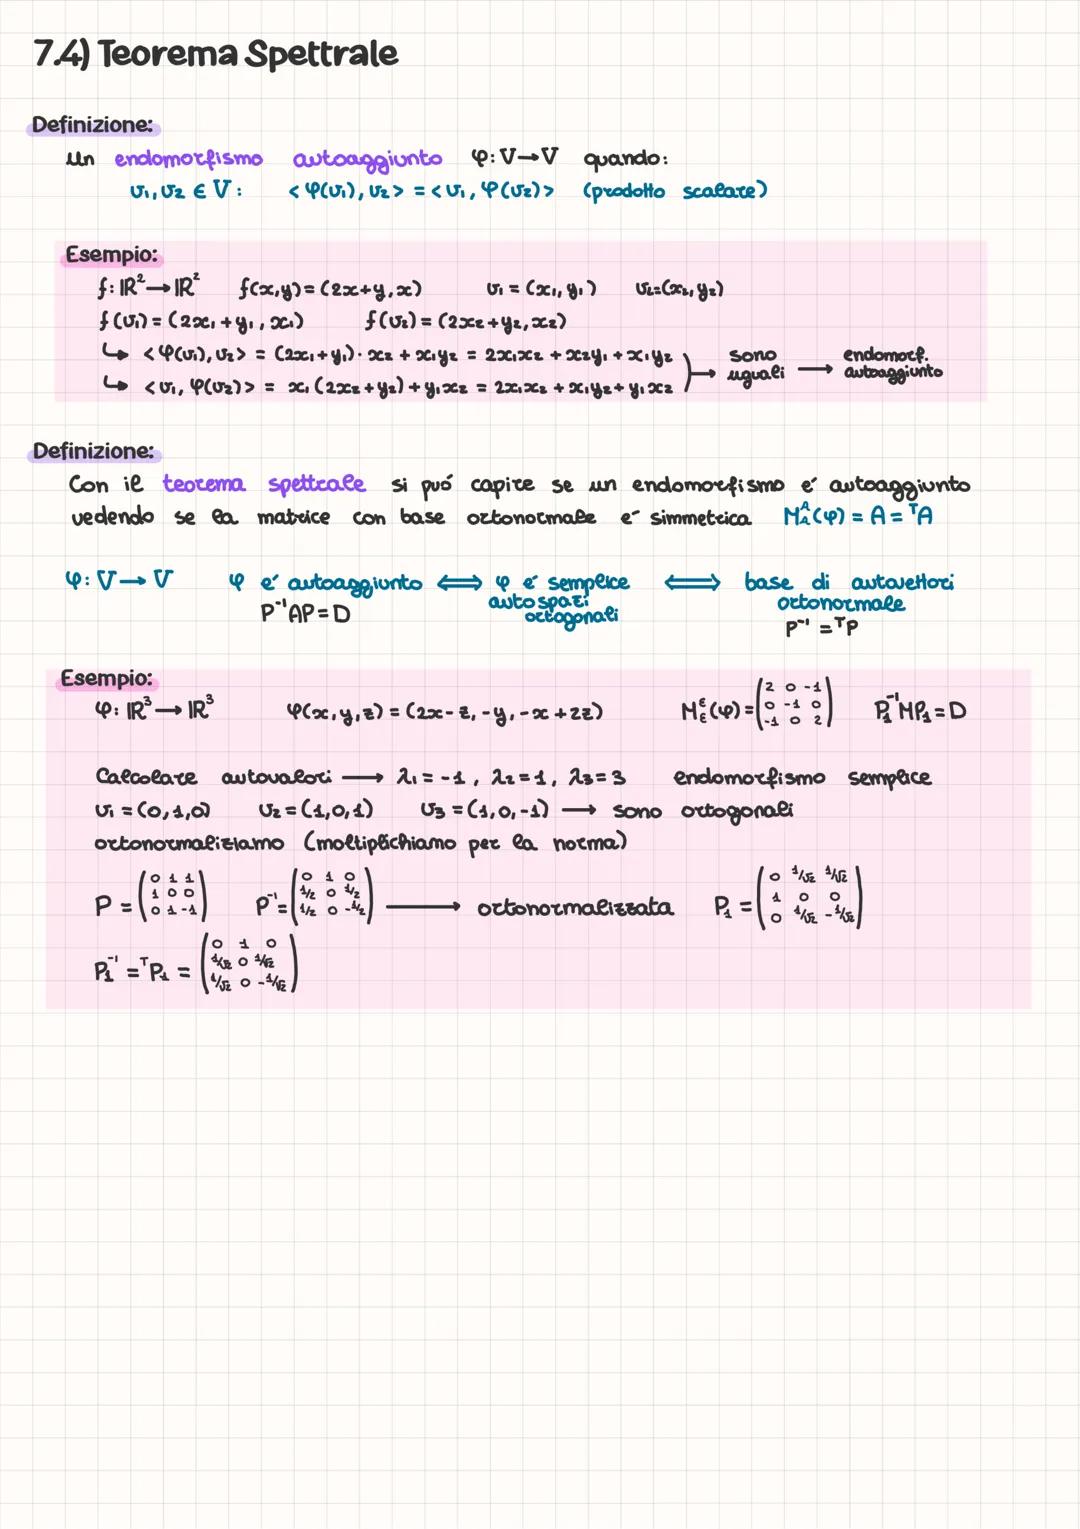 7.4) Teorema Spettrale
Definizione:
Un endomorfismo autoaggiunto φ: V→V quando:
v₁, v₂ ∈ V: <φ(v₁), v₂> = <v₁, φ(v₂)> (prodotto scalare)
Esempio:
f: ℝ² → ℝ² f(x,y) = (2x+y, x) v₁ = (x₁, y₁) v₂=(x₂, y₂)
f(v₁) = (2x₁ + y₁, x₁) f(v₂) = (2x₂ + y₂, x₂)
↳ <φ(v₁), v₂> = (2x₁+y₁)· x₂ + x₁y₂ = 2x₁x₂ + x₂y₁ + x₁y₂ sono uguali → endomorf. autoaggiunto
↳ <v₁, φ(v₂)> = x₁(2x₂+y₂) + y₁x₂ = 2x₁x₂ + x₁y₂ + y₁x₂
Definizione:
Con il teorema spettrale si puó capire se un endomorfismo e´ autoaggiunto
vedendo se la matrice con base ortonormale e´ simmetrica M_A^A(φ) = A = ᵀA
φ: V→V φ e´ autoaggiunto ⟺ φ e´ semplice ⟺ base di autovettori
autospazi ortonormale
P⁻¹AP = D ortogonali P⁻¹ = ᵀP
Esempio:
φ: ℝ³ → ℝ³ φ(x,y,z) = (2x-z, -y, -x+2z) M_ε^ε(φ) = (2 0 -1 / 0 -1 0 / -1 0 2) P₁⁻¹MP₁ = D
Calcolare autovalori → λ₁ = -1, λ₂ = 1, λ₃ = 3 endomorfismo semplice
v₁ = (0,1,0) v₂ = (1,0,1) v₃ = (1,0,-1) → sono ortogonali
ortonormalizziamo (moltiplichiamo per la norma)
P = (0 1 1 / 1 0 0 / 0 1 -1) P⁻¹ = (0 1 0 / 1/2 0 1/2 / 1/2 0 -1/2) → ortonormalizzata P₁ = (0 1/√2 1/√2 / 1 0 0 / 0 1/√2 -1/√2)
P₁⁻¹ = ᵀP₁ = (0 1 0 / 1/√2 0 1/√2 / 1/√2 0 -1/√2)